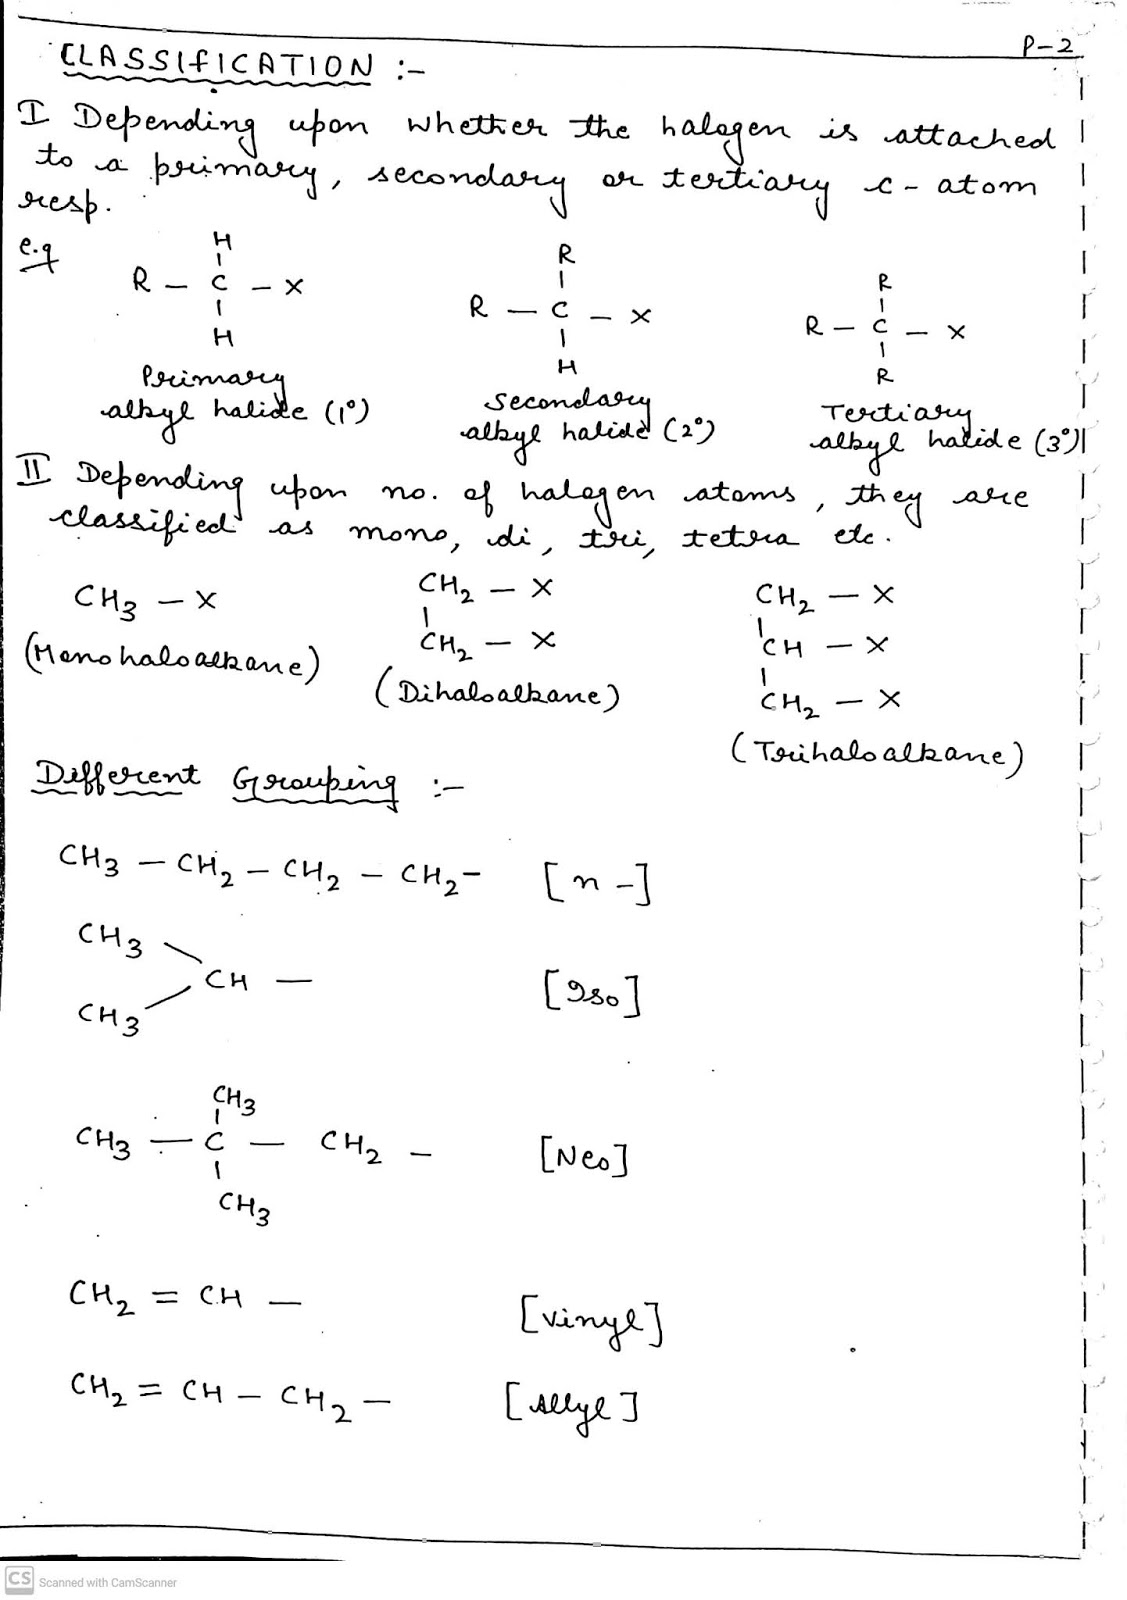 P-2
CLASSIFICATION :-
I Depending upon whether the halogen is attached
to a primary, secondary or tertiary c-atom
resp.
e.g
H
R - C - X
H
Primary
alkyl halide (1°)
R
R - C - X
H
Secondary
alkyl halide (2°)
R
R - C - X
R
Tertiary
alkyl halide (3°)
II Depending upon no. of halogen atoms, they are
classified as mono, di, tri, tetra etc.
CH3 - X
(Monohaloalkane)
CH2 - X
CH2 - X
(Dihaloalkane)
CH2 - X
CH - X
CH2 - X
(Trihaloalkane)
Different Grouping :-
CH3 - CH2 - CH2 - CH2- [n-]
CH3
CH - [Iso]
CH3
CH3
CH3 - C - CH2 - [Neo]
CH3
CH2 = CH - [vinyl]
CH2 = CH - CH2 - [Allyl]
CS Scanned with CamScanner